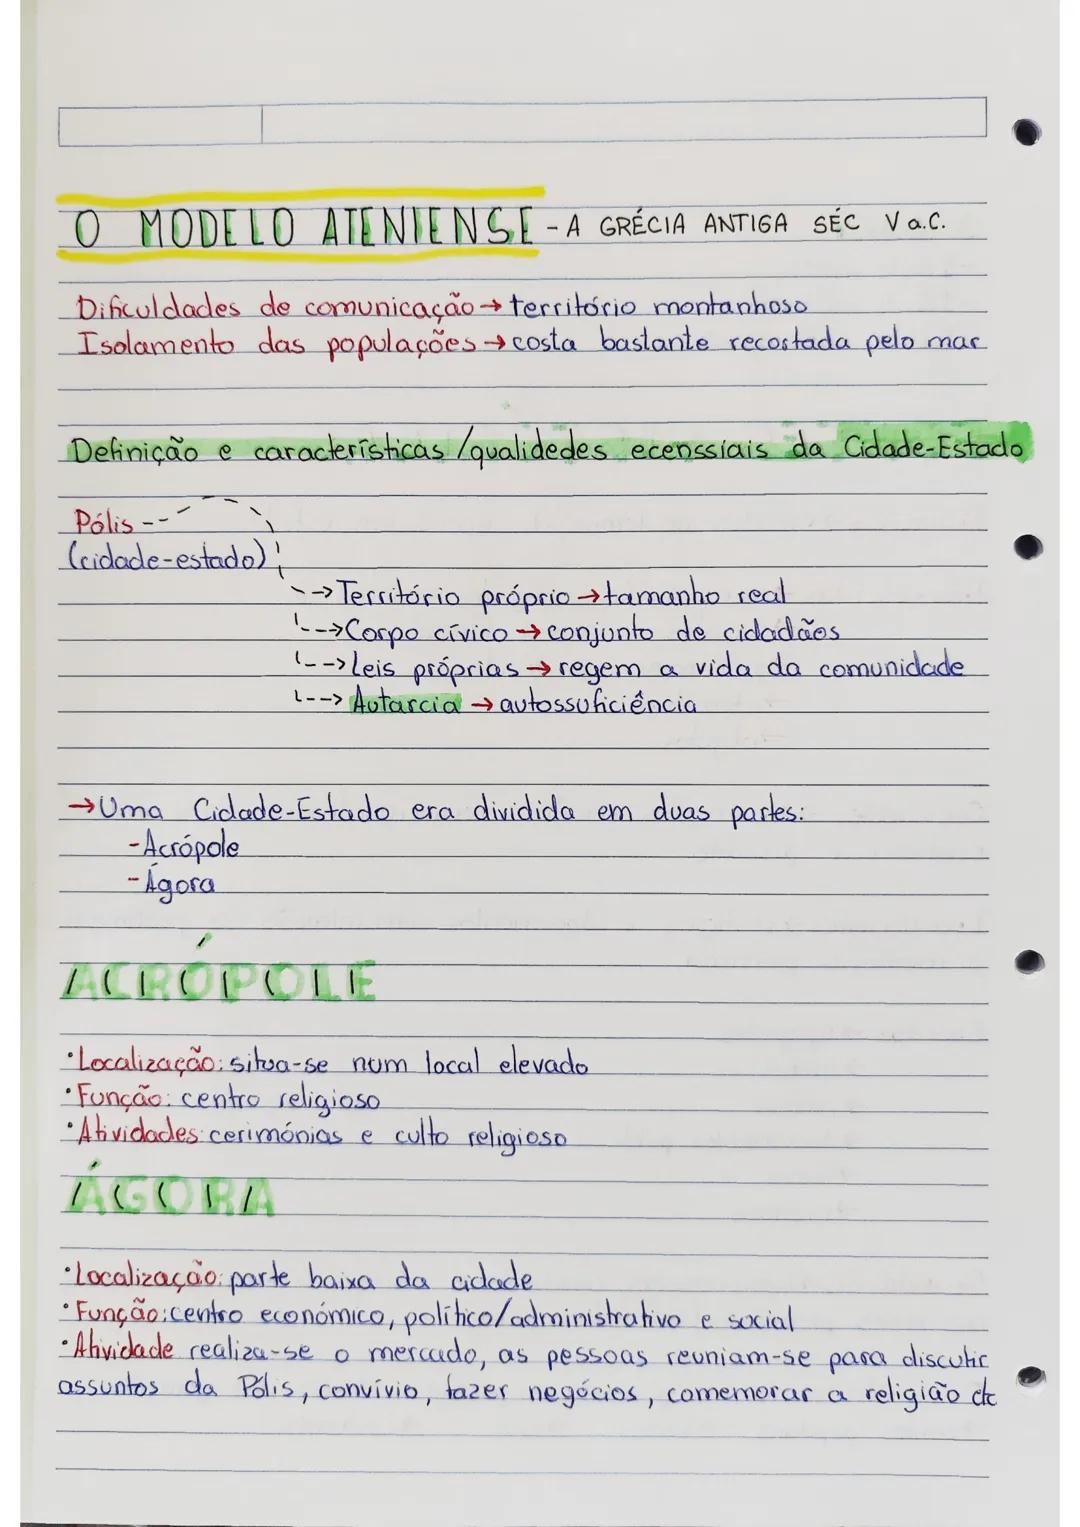 O MODELO ATENIENSE - A GRÉCIA ANTIGA SÉC V a.C.
Dificuldades de comunicação → território montanhoso
Isolamento das populações → costa bastante recostada pelo mar
Definição e características/qualidedes ecenssiais da Cidade-Estado
Pólis
(cidade-estado)
--> Território próprio → tamanho real
--> Corpo cívico → conjunto de cidadãos
--> leis próprias → regem a vida da comunidade
--> Autarcia → autossuficiência
→ Uma Cidade-Estado era dividida em duas partes:
- Acrópole
- Ágora
ACRÓPOLE
• Localização: situa-se num local elevado
• Função: centro religioso
• Atividades: cerimónias e culto religioso
ÁGORA
• Localização: parte baixa da cidade
• Função: centro económico, político/administrativo e social
• Atividade realiza-se o mercado, as pessoas reuniam-se para discutir
assuntos da Pólis, convívio, fazer negócios, comemorar a religião etc